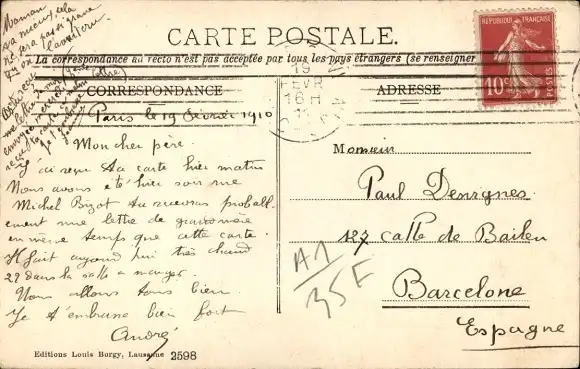 Maman
va mieux, cela
ne sera pas si grave
CARTE POSTALE.
La correspondance au recto n'est pas acceptée par tous les pays étrangers (se renseigner
CORRESPONDANCE
ADRESSE
RÉPUBLIQUE FRANÇAISE
10c
POSTES
19
FEVR
16 H
Paris le 19 Février 1910
Mon cher père.
J'ai reçu ta carte hier matin
Nous avons été hier soir rue
Michel Bizot tu recevras proball
ement une lettre de
en même temps que cette carte.
Il fait aujourd'hui très chaud
22 dans la salle a manger.
Nous allons tous bien.
Je t'embrasse bien fort
André
Monsieur
Paul Denignes
127 calle de Bailen
Barcelone
Espagne
A1
35 F
Editions Louis Burgy, Lausanne 2598